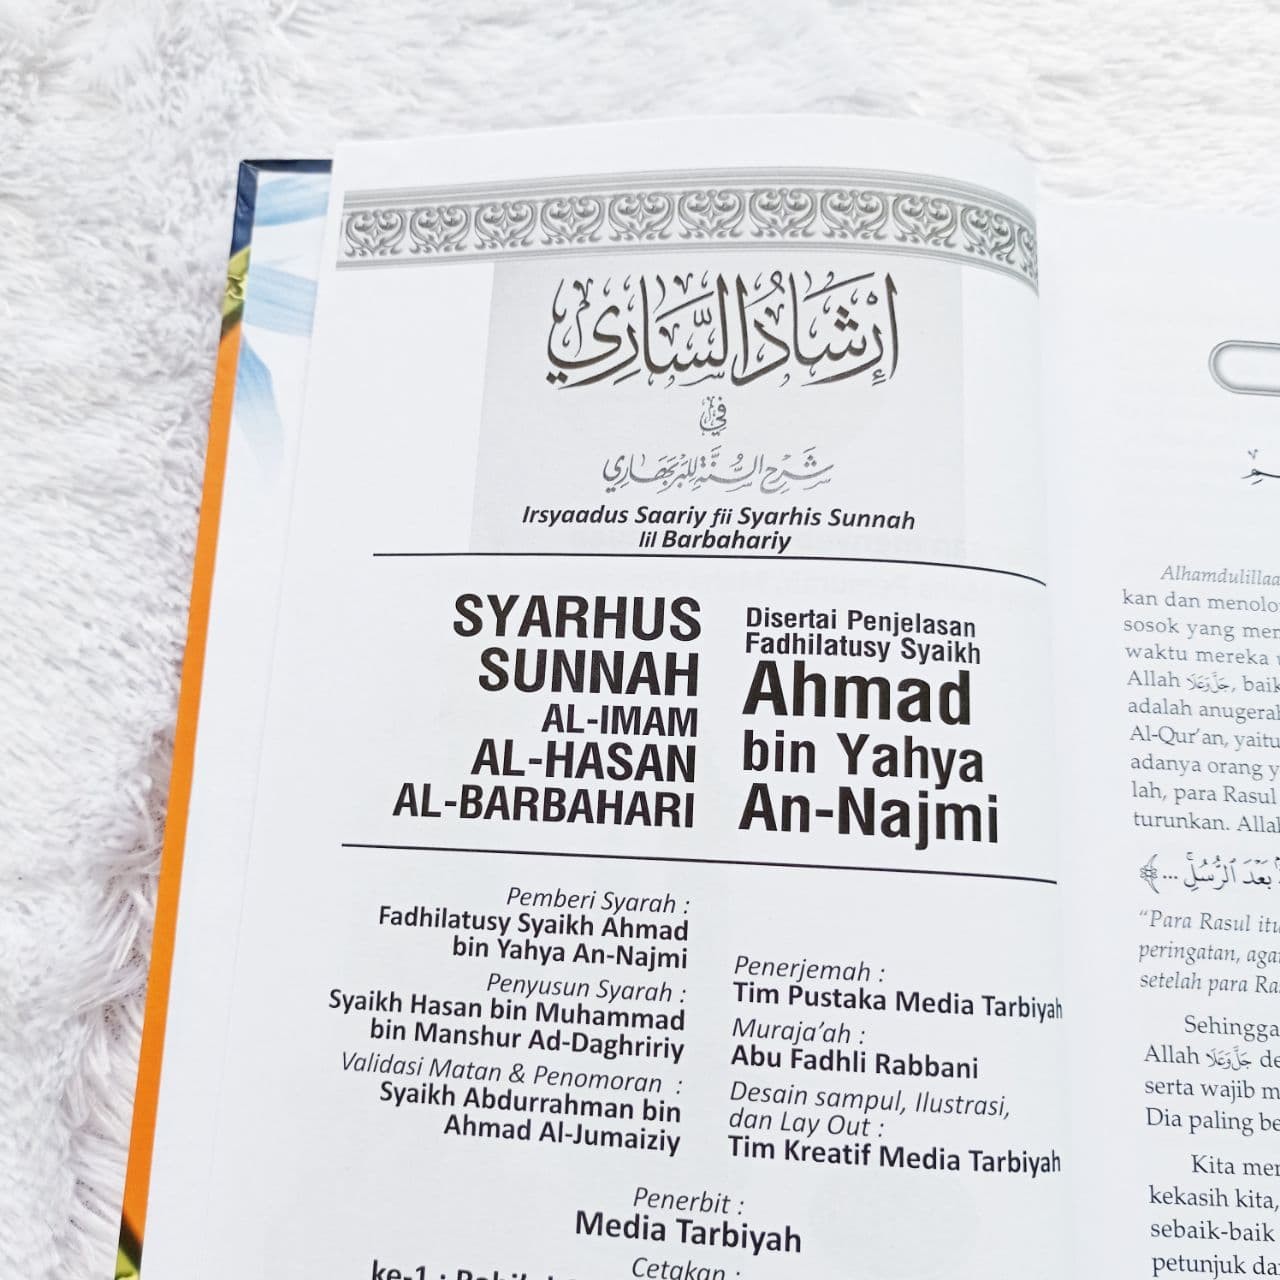 إِرْشَادُ السَّارِي
فِي
شَرْحِ السُّنَّةِ لِلْبَرْبَهَارِي
Irsyaadus Saariy fii Syarhis Sunnah
lil Barbahariy
SYARHUS
SUNNAH
AL-IMAM
AL-HASAN
AL-BARBAHARI
Disertai Penjelasan
Fadhilatusy Syaikh
Ahmad
bin Yahya
An-Najmi
Pemberi Syarah :
Fadhilatusy Syaikh Ahmad
bin Yahya An-Najmi
Penyusun Syarah :
Syaikh Hasan bin Muhammad
bin Manshur Ad-Daghririy
Validasi Matan & Penomoran :
Syaikh Abdurrahman bin
Ahmad Al-Jumaiziy
Penerjemah :
Tim Pustaka Media Tarbiyah
Muraja'ah :
Abu Fadhli Rabbani
Desain sampul, Ilustrasi,
dan Lay Out :
Tim Kreatif Media Tarbiyah
Penerbit :
Media Tarbiyah
Cetakan :
ke-1 :
Alhamdulillaa
kan dan menolo
sosok yang mer
waktu mereka
Allah جَلَّ وَعَلَا, baik
adalah anugerah
Al-Qur'an, yaitu
adanya orang y
lah, para Rasul
turunkan. Allah
بَعْدَ ٱلرُّسُلِ ... ﴾
"Para Rasul itu
peringatan, agar
setelah para Ra
Sehingga
Allah جَلَّ وَعَلَا de
serta wajib m
Dia paling be
Kita mer
kekasih kita,
sebaik-baik
petunjuk da